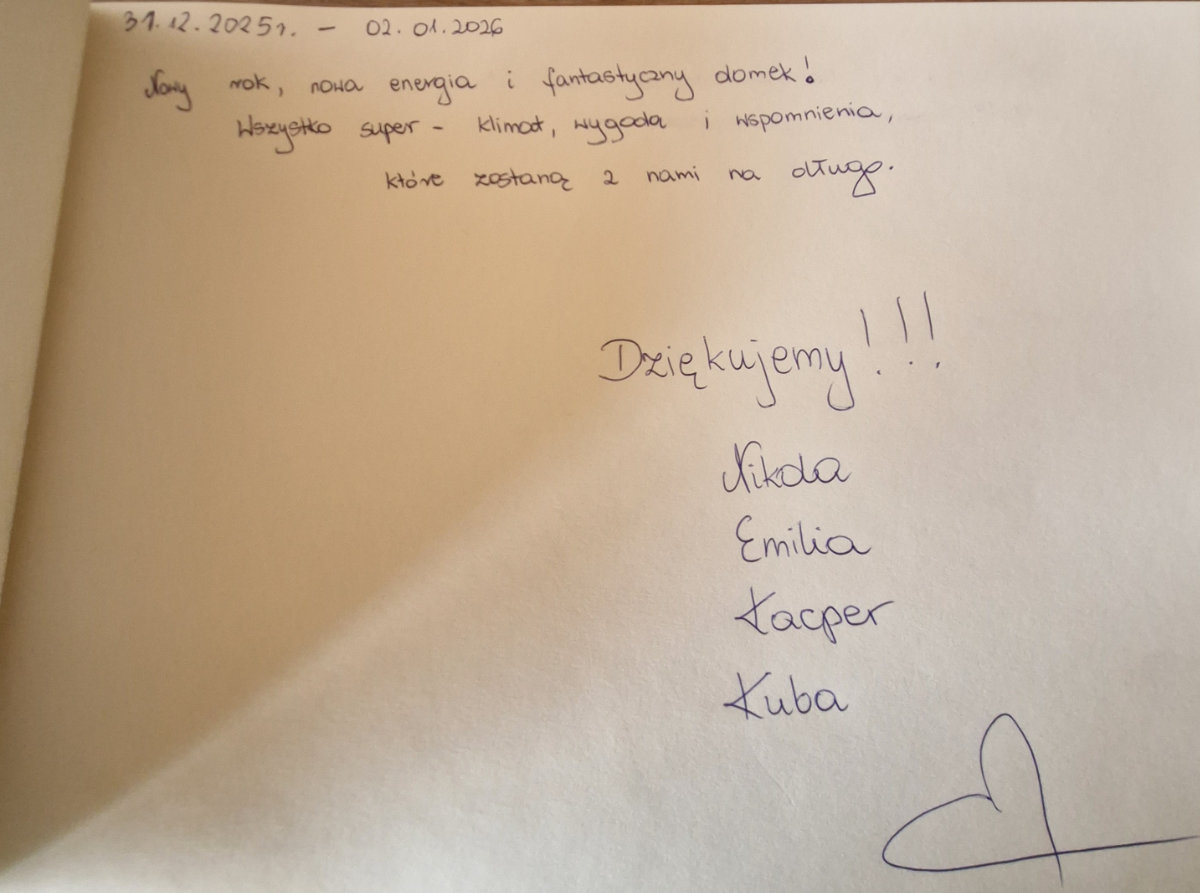 31.12.2025r. - 02.01.2026
Nowy rok, nowa energia i fantastyczny domek!
Wszystko super - klimat, wygoda i wspomnienia,
które zostaną z nami na długo.
Dziękujemy!!!
Nikola
Emilia
Kacper
Kuba